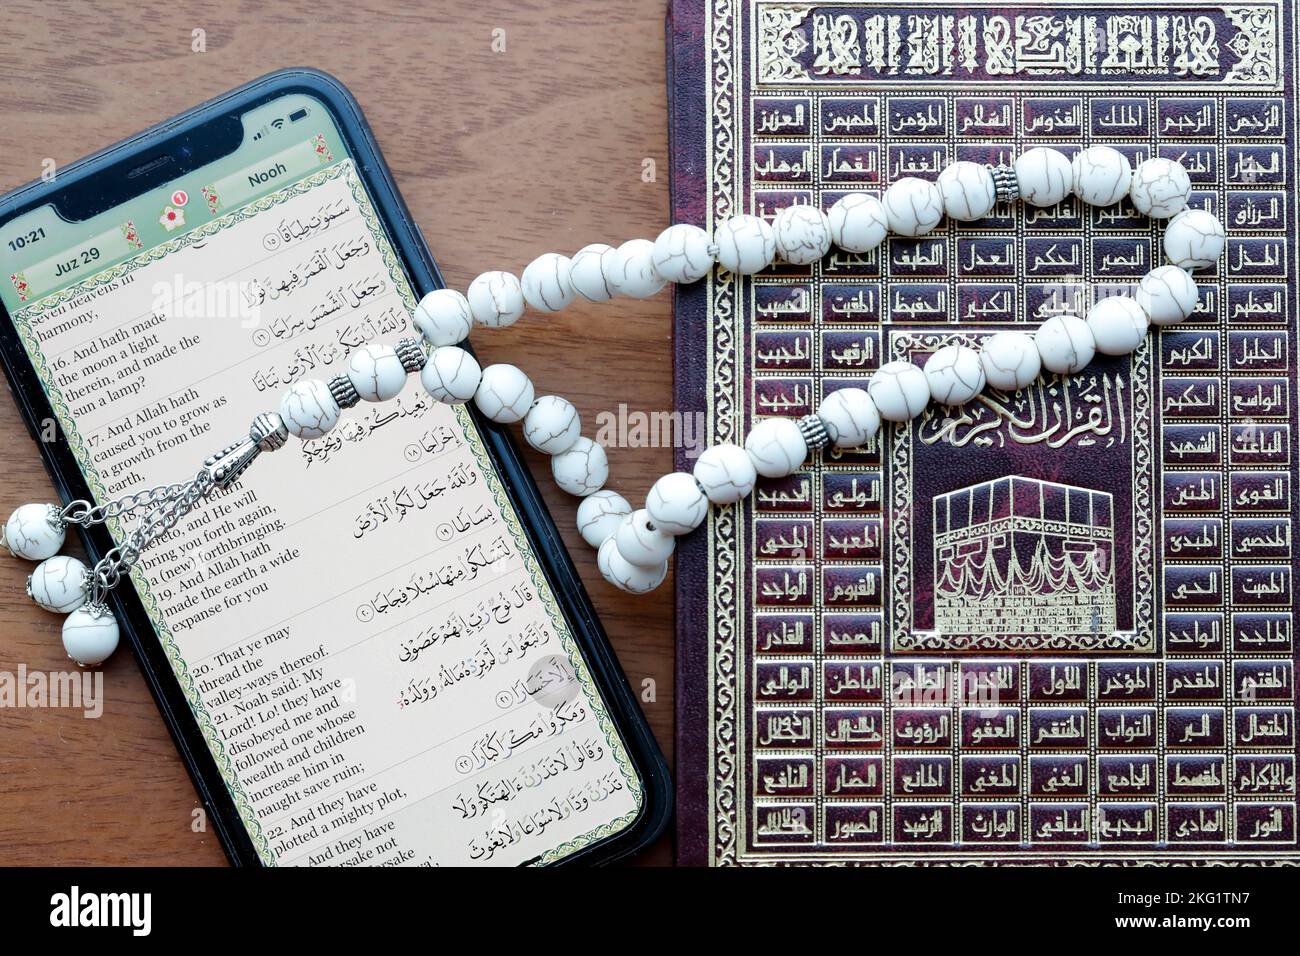 10:21
Juz 29
1
Nooh
seven heavens in
harmony,
سَمَٰوَٰتٍ طِبَاقًا ١٥
16. And hath made
the moon a light
therein, and made the
sun a lamp?
وَجَعَلَ ٱلْقَمَرَ فِيهِنَّ نُورًا
وَجَعَلَ ٱلشَّمْسَ سِرَاجًا ١٦
17. And Allah hath
caused you to grow as
a growth from the
earth,
وَٱللَّهُ أَنۢبَتَكُم مِّنَ ٱلْأَرْضِ نَبَاتًا
return
and He will
bring you forth again,
a (new) forthbringing.
يُعِيدُكُمْ فِيهَا وَيُخْرِجُكُمْ
إِخْرَاجًا ١٨
19. And Allah hath
made the earth a wide
expanse for you
وَٱللَّهُ جَعَلَ لَكُمُ ٱلْأَرْضَ
بِسَاطًا ١٩
20. That ye may
thread the
valley-ways thereof.
لِّتَسْلُكُوا۟ مِنْهَا سُبُلًا فِجَاجًا ٢٠
21. Noah said: My
Lord! Lo! they have
disobeyed me and
followed one whose
wealth and children
increase him in
naught save ruin;
قَالَ نُوحٌ رَّبِّ إِنَّهُمْ عَصَوْنِى
وَٱتَّبَعُوا۟ مَن لَّمْ يَزِدْهُ مَالُهُۥ وَوَلَدُهُۥٓ
إِلَّا خَسَارًا ٢١
22. And they have
plotted a mighty plot,
وَمَكَرُوا۟ مَكْرًا كُبَّارًا ٢٢
And they have
وَقَالُوا۟ لَا تَذَرُنَّ ءَالِهَتَكُمْ وَلَا
تَذَرُنَّ وَدًّا وَلَا سُوَاعًا وَلَا يَغُوثَ
الرحمن الرحيم الملك القدوس السلام المؤمن المهيمن العزيز
الجبار الغفار القهار الوهاب
الرزاق
المذل البصير الحكم العدل اللطيف
العظيم الكبير الحفيظ المقيت الحسيب
الجليل الكريم الرقيب المجيب
الواسع الحكيم المجيد
القرآن الكريم
الباعث الشهيد
القوي المتين الولي الحميد
المحصي المبدئ المعيد المحي
المميت الحي القيوم الواجد
الماجد الواحد الصمد القادر
المقتدر المقدم المؤخر الأول الآخر الظاهر الباطن الوالي
المتعال البر التواب المنتقم العفو الرؤوف
والإكرام المقسط الجامع الغني المغني المانع الضار النافع
النور الهادي البديع الباقي الوارث الرشيد الصبور
alamy
Image ID: 2KG1TN7
www.alamy.com